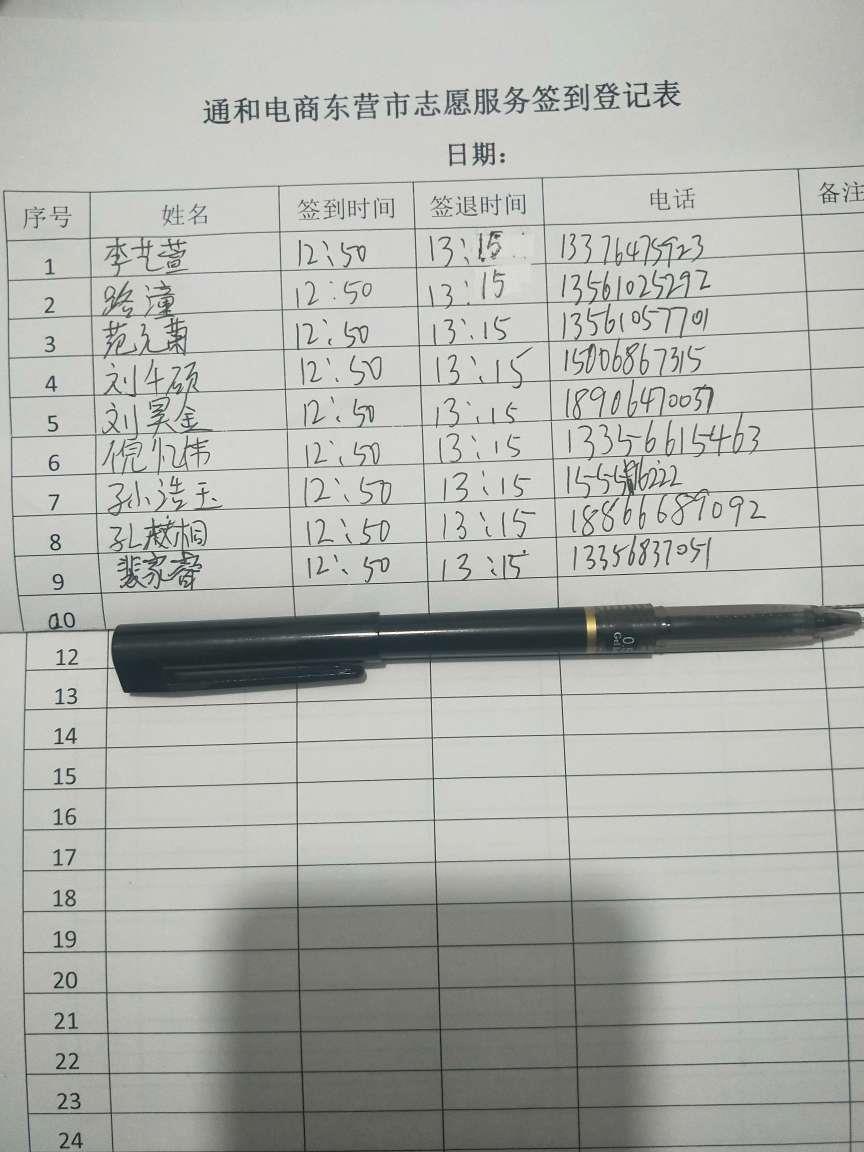 通和电商东营市志愿服务签到登记表
日期：
序号 姓名 签到时间 签退时间 电话 备注
1 李艺萱 12:50 13:15 13376475923
2 路潼 12:50 13:15 13561025292
3 范元菊 12:50 13:15 13561057701
4 刘午硕 12:50 13:15 15006867315
5 刘昊金 12:50 13:15 18906470057
6 倪忆伟 12:50 13:15 133566615463
7 孙浩玉 12:50 13:15
8 孔赫桐 12:50 13:15 18866689092
9 裴家睿 12:50 13:15 13356837051
10
12
13
14
15
16
17
18
19
20
21
22
23
24